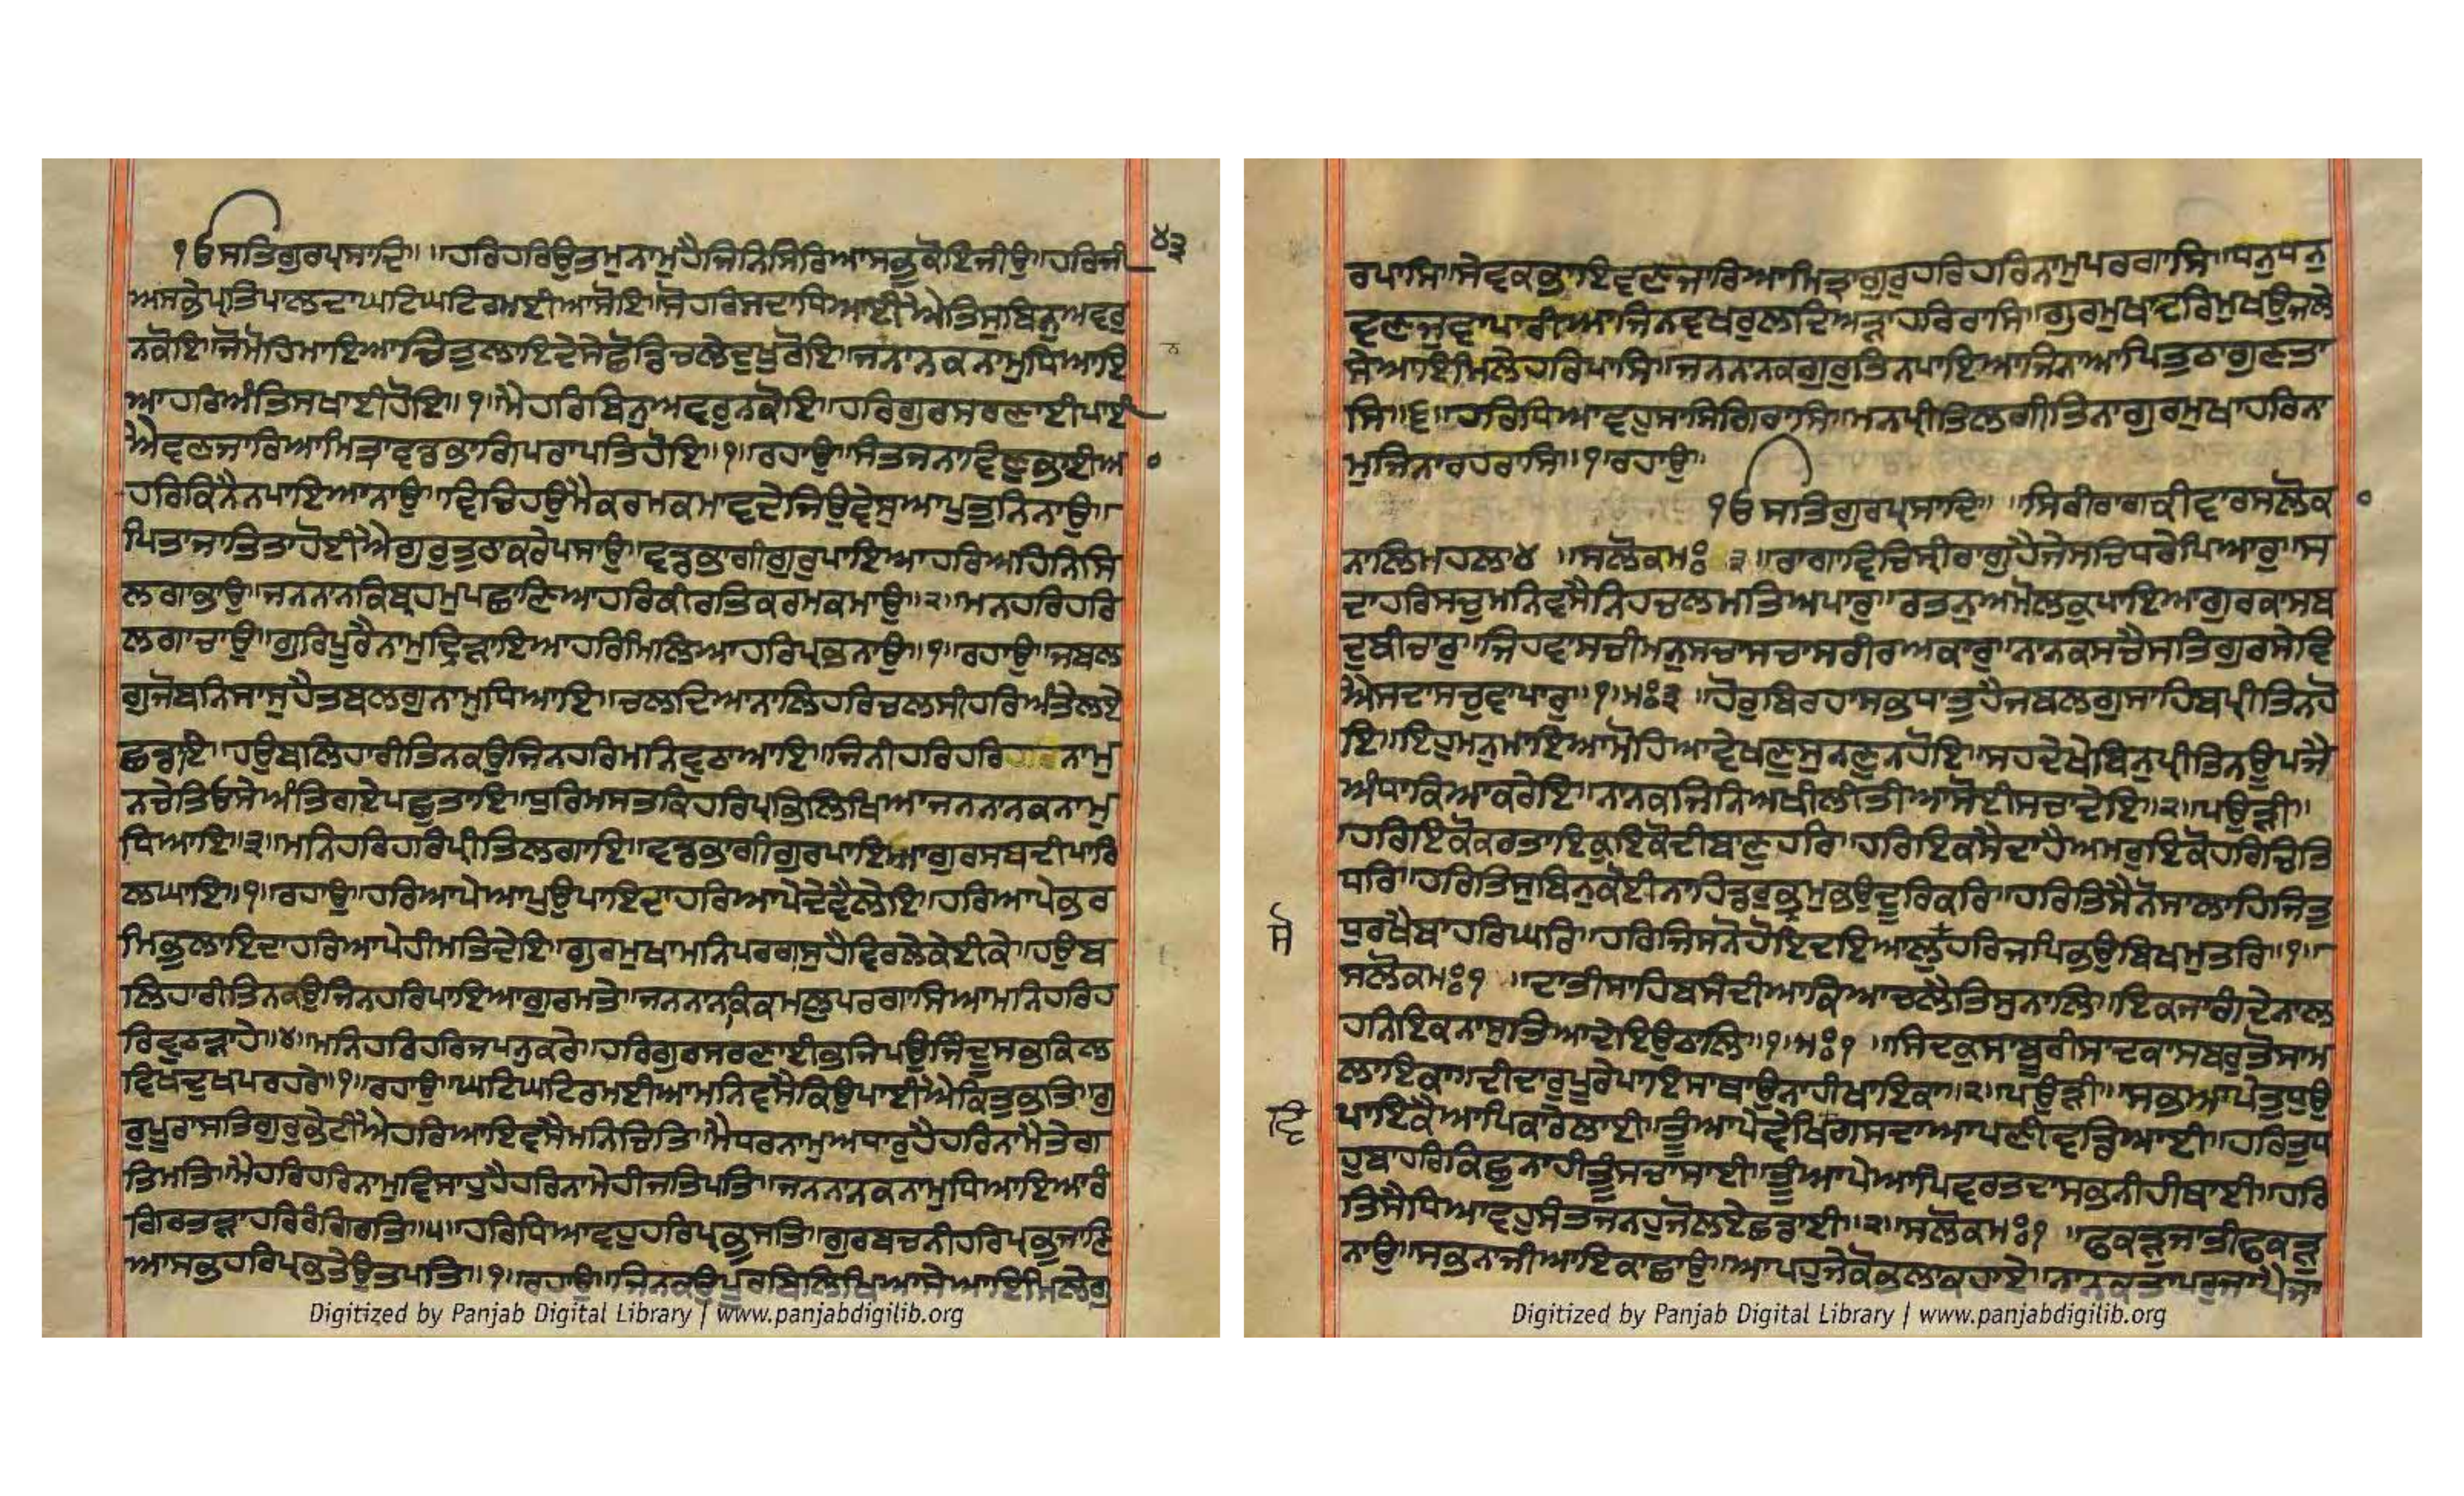 ੪੩
ੴਸਤਿਗੁਰਪ੍ਰਸਾਦਿ॥ ॥ਹਰਿਹਰਿਉਤਮੁਨਾਮੁਹੈਜਿਨਿਸਿਰਿਆਸਭੁਕੋਇਜੀਉ॥ਹਰਿਜੀ
ਅਸਭੇਪ੍ਰਤਿਪਾਲਦਾਘਟਿਘਟਿਰਮਈਆਸੋਇ॥ਸੋਹਰਿਸਦਾਧਿਆਈਐਤਿਸੁਬਿਨੁਅਵਰੁ
ਨਕੋਇ॥ਜੋਮੋਹਿਮਾਇਆਚਿਤੁਲਾਇਦੇਸੇਛੋਡਿਚਲੇਦੁਖੁਰੋਇ॥ਜਨਨਾਨਕਨਾਮੁਧਿਆਇ
ਆਹਰਿਅੰਤਿਸਖਾਈਹੋਇ॥੧॥ਮੈਹਰਿਬਿਨੁਅਵਰੁਨਕੋਇ॥ਹਰਿਗੁਰਸਰਣਾਈਪਾਈ
ਐਵਣਜਾਰਿਆਮਿਤ੍ਰਾਵਡਭਾਗਿਪਰਾਪਤਿਹੋਇ॥੧॥ਰਹਾਉ॥ਸੰਤਜਨਾਵਿਣੁਭਾਈਅ
ਹਰਿਕਿਨੈਨਪਾਇਆਨਾਉ॥ਵਿਚਿਹਉਮੈਕਰਮਕਮਾਵਦੇਜਿਉਵੇਸੁਆਪੁਤੁਨਿਨਾਉ॥
ਪਿਤਾਜਾਤਿਤਾਹੋਈਐਗੁਰੁਤੁਠਾਕਰੇਪਸਾਉ॥ਵਡਭਾਗੀਗੁਰੁਪਾਇਆਹਰਿਅਹਿਨਿਸਿ
ਲਗਾਭਾਉ॥ਜਨਨਾਨਕਿਬ੍ਰਹਮੁਪਛਾਣਿਆਹਰਿਕੀਰਤਿਕਰਮਕਮਾਉ॥੨॥ਮਨਹਰਿਹਰਿ
ਲਗਾਚਾਉ॥ਗੁਰਿਪੂਰੈਨਾਮੁਦ੍ਰਿੜਾਇਆਹਰਿਮਿਲਿਆਹਰਿਪ੍ਰਭਨਾਉ॥੧॥ਰਹਾਉ॥ਜਬਲ
ਗੁਜੋਬਨਿਸਾਸੁਹੈਤਬਲਗੁਨਾਮੁਧਿਆਇ॥ਚਲਦਿਆਨਾਲਿਹਰਿਚਲਸੀਹਰਿਅੰਤੇਲਏ
ਛਡਾਇ॥ਹਉਬਲਿਹਾਰੀਤਿਨਕਉਜਿਨਹਰਿਮਨਿਵੁਠਾਆਇ॥ਜਿਨੀਹਰਿਹਰਿਨਾਮੁ
ਨਚੇਤਿਓਸੇਅੰਤਿਗਏਪਛੁਤਾਇ॥ਧੁਰਿਮਸਤਕਿਹਰਿਪ੍ਰਭਿਲਿਖਿਆਜਨਨਾਨਕਨਾਮੁ
ਧਿਆਇ॥੩॥ਮਨਿਹਰਿਹਰਿਪ੍ਰੀਤਿਲਗਾਇ॥ਵਡਭਾਗੀਗੁਰਪਾਇਆਗੁਰਸਬਦੀਪਾਰਿ
ਲਘਾਇ॥੧॥ਰਹਾਉ॥ਹਰਿਆਪੇਆਪੁਉਪਾਇਦਾਹਰਿਆਪੇਦੇਵੈਲੇਇ॥ਹਰਿਆਪੇਭਰ
ਮਿਭੁਲਾਇਦਾਹਰਿਆਪੇਹੀਮਤਿਦੇਇ॥ਗੁਰਮੁਖਾਮਨਿਪਰਗਾਸੁਹੈਵਿਰਲੇਕੇਈਕੇ॥ਹਉਬ
ਲਿਹਾਰੀਤਿਨਕਉਜਿਨਹਰਿਪਾਇਆਗੁਰਮਤੇ॥ਜਨਨਾਨਕਿਕਮਲੁਪਰਗਾਸਿਆਮਨਿਹਰਿਹ
ਰਿਵੁਠੜਾਹੇ॥੪॥ਮਨਿਹਰਿਹਰਿਜਪਨੁਕਰੇ॥ਹਰਿਗੁਰਸਰਣਾਈਭਜਿਪਉਜਿੰਦੂਸਭਕਿਲ
ਵਿਖਦੁਖਪਰਹਰੇ॥੧॥ਰਹਾਉ॥ਘਟਿਘਟਿਰਮਈਆਮਨਿਵਸੈਕਿਉਪਾਈਐਕਿਤੁਭਤਿ॥ਗੁ
ਰੁਪੂਰਾਸਤਿਗੁਰੁਭੇਟੀਐਹਰਿਆਇਵਸੈਮਨਿਚਿਤਿ॥ਮੈਧਰਨਾਮੁਅਧਾਰੁਹੈਹਰਿਨਾਮੈਤੇਗ
ਤਿਮਤਿ॥ਮੈਹਰਿਹਰਿਨਾਮੁਵਿਸਾਹੁਹੈਹਰਿਨਾਮੇਹੀਜਤਿਪਤਿ॥ਜਨਨਾਨਕਨਾਮੁਧਿਆਇਆਰੰ
ਗਿਰਤੜਾਹਰਿਰੰਗਿਰਤਿ॥੫॥ਹਰਿਧਿਆਵਹੁਹਰਿਪ੍ਰਭੁਸਤਿ॥ਗੁਰਬਚਨੀਹਰਿਪ੍ਰਭੁਜਾਣਿ
ਆਸਭਹਰਿਪ੍ਰਭਤੇਉਤਪਤਿ॥੧॥ਰਹਾਉ॥ਜਿਨਕਉਪੂਰਬਿਲਿਖਿਆਸੇਆਇਮਿਲੇਗੁ
Digitized by Panjab Digital Library | www.panjabdigilib.org
ਰਪਾਸਿ॥ਸੇਵਕਭਾਇਵਣਜਾਰਿਆਮਿਤ੍ਰਾਗੁਰੁਹਰਿਹਰਿਨਾਮੁਪਰਗਾਸਿ॥ਧਨੁਧਨੁ
ਵਣਜੁਵਾਪਾਰੀਆਜਿਨਵਖਰੁਲਦਿਅੜਾਹਰਿਰਾਸਿ॥ਗੁਰਮੁਖਾਦਰਿਮੁਖਉਜਲੇ
ਸੇਆਇਮਿਲੇਹਰਿਪਾਸਿ॥ਜਨਨਾਨਕਗੁਰੁਤਿਨਪਾਇਆਜਿਨਾਆਪਿਤੁਠਾਗੁਣਤਾ
ਸਿ॥੬॥ਹਰਿਧਿਆਵਹੁਸਾਸਿਗਿਰਾਸਿ॥ਮਨਪ੍ਰੀਤਿਲਗੀਤਿਨਾਗੁਰਮੁਖਾਹਰਿਨਾ
ਮੁਜਿਨਾਰਹਰਾਸਿ॥੧॥ਰਹਾਉ॥
ੴਸਤਿਗੁਰਪ੍ਰਸਾਦਿ॥ ॥ਸਿਰੀਰਾਗਕੀਵਾਰਸਲੋਕ
ਨਾਲਿਮਹਲਾ੪ ॥ਸਲੋਕਮਃ੩॥ਰਾਗਾਵਿਚਿਸ੍ਰੀਰਾਗੁਹੈਜੇਸਚਿਧਰੇਪਿਆਰੁ॥ਸ
ਦਾਹਰਿਸਚੁਮਨਿਵਸੈਨਿਹਚਲਮਤਿਅਪਾਰੁ॥ਰਤਨੁਅਮੋਲਕੁਪਾਇਆਗੁਰਕਾਸਬ
ਦੁਬੀਚਾਰੁ॥ਜਿਹਵਾਸਚੀਮਨੁਸਚਾਸਚਾਸਰੀਰਅਕਾਰੁ॥ਨਾਨਕਸਚੈਸਤਿਗੁਰਸੇਵਿ
ਐਸਦਾਸਚੁਵਾਪਾਰੁ॥੧॥ਮਃ੩ ॥ਹੋਰੁਬਿਰਹਾਸਭਧਾਤੁਹੈਜਬਲਗੁਸਾਹਿਬਪ੍ਰੀਤਿਨਹੋ
ਇ॥ਇਹੁਮਨੁਮਾਇਆਮੋਹਿਆਵੇਖਣੁਸੁਨਣੁਨਹੋਇ॥ਸਹਦੇਖੇਬਿਨੁਪ੍ਰੀਤਿਨਊਪਜੈ
ਅੰਧਾਕਿਆਕਰੇਇ॥ਨਾਨਕਜਿਨਿਅਖੀਲੀਤੀਆਸੋਈਸਚਾਦੇਇ॥੨॥ਪਉੜੀ॥
ਹਰਿਇਕੋਕਰਤਾਇਕੁਇਕੋਦੀਬਾਣੁਹਰਿ॥ਹਰਿਇਕਸੈਦਾਹੈਅਮਰੁਇਕੋਹਰਿਚਿਤਿ
ਧਰਿ॥ਹਰਿਤਿਸੁਬਿਨੁਕੋਈਨਾਹਿਡਰੁਭ੍ਰਮੁਭਉਦੂਰਿਕਰਿ॥ਹਰਿਤਿਸੈਨੋਸਾਲਾਹਿਜਿਤੁ
ਸੋ
ਧੁਰਖੈਬਾਹਰਿਘਰਿ॥ਹਰਿਜਿਸਨੋਹੋਇਦਇਆਲੁਹਰਿਜਪਿਭਉਬਿਖਮੁਤਰਿ॥੧॥
ਸਲੋਕਮਃ੧ ॥ਦਾਤੀਸਾਹਿਬਸੰਦੀਆਕਿਆਚਲੈਤਿਸੁਨਾਲਿ॥ਇਕਜਾਗੰਦੇਨਾਲ
ਹਨਿਇਕਨਾਸੁਤਿਆਦੇਇਉਠਾਲਿ॥੧॥ਮਃ੧ ॥ਸਿਦਕੁਸਾਬੂਰੀਸਾਦਕਾਸਬਰੁਤੋਸਾਮ
ਲਾਇਕਾ॥ਦੀਦਾਰੁਪੂਰੇਪਾਇਸਾਥਾਉਨਾਹੀਖਾਇਕਾ॥੨॥ਪਉੜੀ॥ਸਭਆਪੇਤੁਧੁਉ
ਵਿ
ਪਾਇਕੈਆਪਿਕਾਰੈਲਾਈ॥ਤੂੰਆਪੇਵੇਖਿਗਸਦਾਆਪਣੀਵਡਿਆਈ॥ਹਰਿਤੁਧ
ਹੁਬਾਹਰਿਕਿਛੁਨਾਹੀਤੂੰਸਚਾਸਾਈ॥ਤੂੰਆਪੇਆਪਿਵਰਤਦਾਸਭਨੀਹੀਥਾਈ॥ਹਰਿ
ਤਿਸੈਧਿਆਵਹੁਸੰਤਜਨਹੁਜੋਲਏਛਡਾਈ॥੨॥ਸਲੋਕਮਃ੧ ॥ਫਕੜਜਾਤੀਫਕੜੁ
ਨਾਉ॥ਸਭਨਾਜੀਆਇਕਾਛਾਉ॥ਆਪਹੁਜੇਕੋਭਲਾਕਹਾਏ॥ਨਾਨਕਤਾਪਰੁਜਾਪੈਜਾ
Digitized by Panjab Digital Library | www.panjabdigilib.org